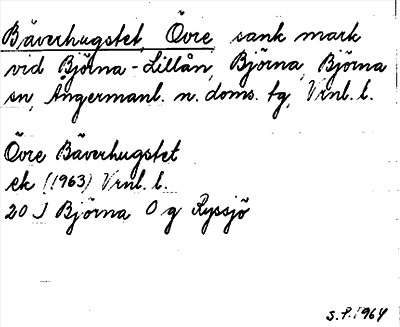 Bäverhugstet, Övre sank mark
vid Björna-Lillån, Björna, Björna
sn, Ångermanl. n. doms. tg, Vrnl. l.
Övre Bäverhugstet
ek (1963) Vrnl. l.
20 J Björna 0 g Ryssjö
S.P. 1964